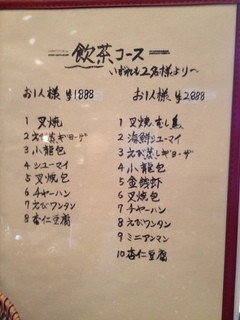 飲茶コース
いずれも2名様より
お1人様 ¥1888
1 叉焼
2 えび蒸しギョーザ
3 小龍包
4 シューマイ
5 叉焼包
6 チャーハン
7 えびワンタン
8 杏仁豆腐
お1人様 ¥2888
1 叉焼
2 海鮮シューマイ
3 えび蒸しギョーザ
4 小龍包
5 金銭蝦
6 叉焼包
7 チャーハン
8 えびワンタン
9 ミニアンマン
10 杏仁豆腐